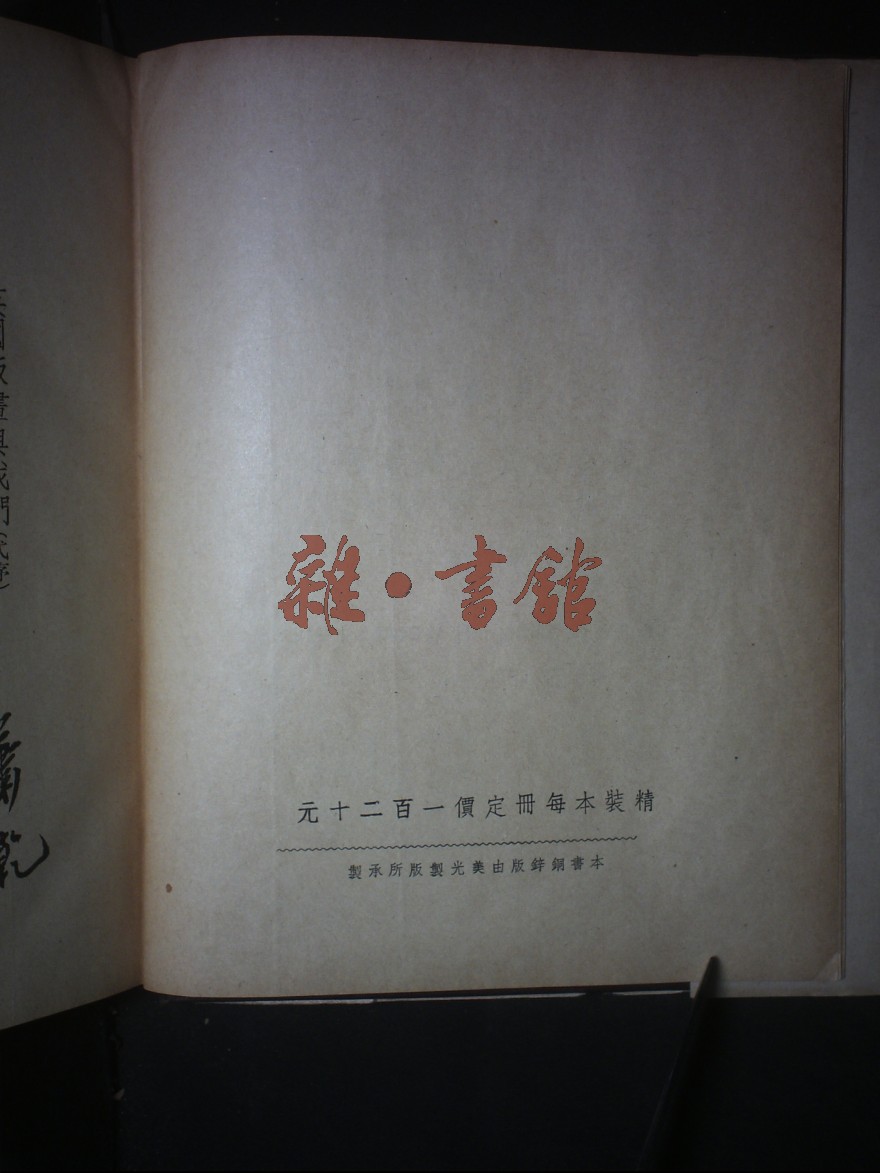 英國版畫與我們(代序)
蕭乾
雜·書館
精裝本每冊定價一百二十元
本書銅鋅版由美光製版所承製